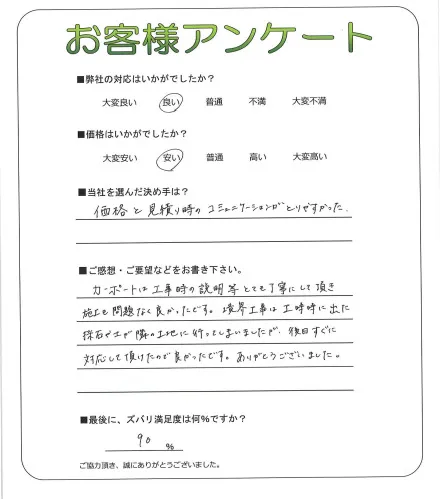 お客様アンケート
■弊社の対応はいかがでしたか?
大変良い 良い 普通 不満 大変不満
■価格はいかがでしたか?
大変安い 安い 普通 高い 大変高い
■当社を選んだ決め手は?
価格と見積り時のコミュニケーションがとりやすかった。
■ご感想・ご要望などをお書き下さい。
カーポートは工事時の説明等とても丁寧にして頂き
施工も問題なく良かったです。境界工事は工事時に出た
採石や土が隣の土地に行ってしまいましたが、後日すぐに
対応して頂けたので良かったです。ありがとうございました。
■最後に、ズバリ満足度は何%ですか?
90 %
ご協力頂き、誠にありがとうございました。